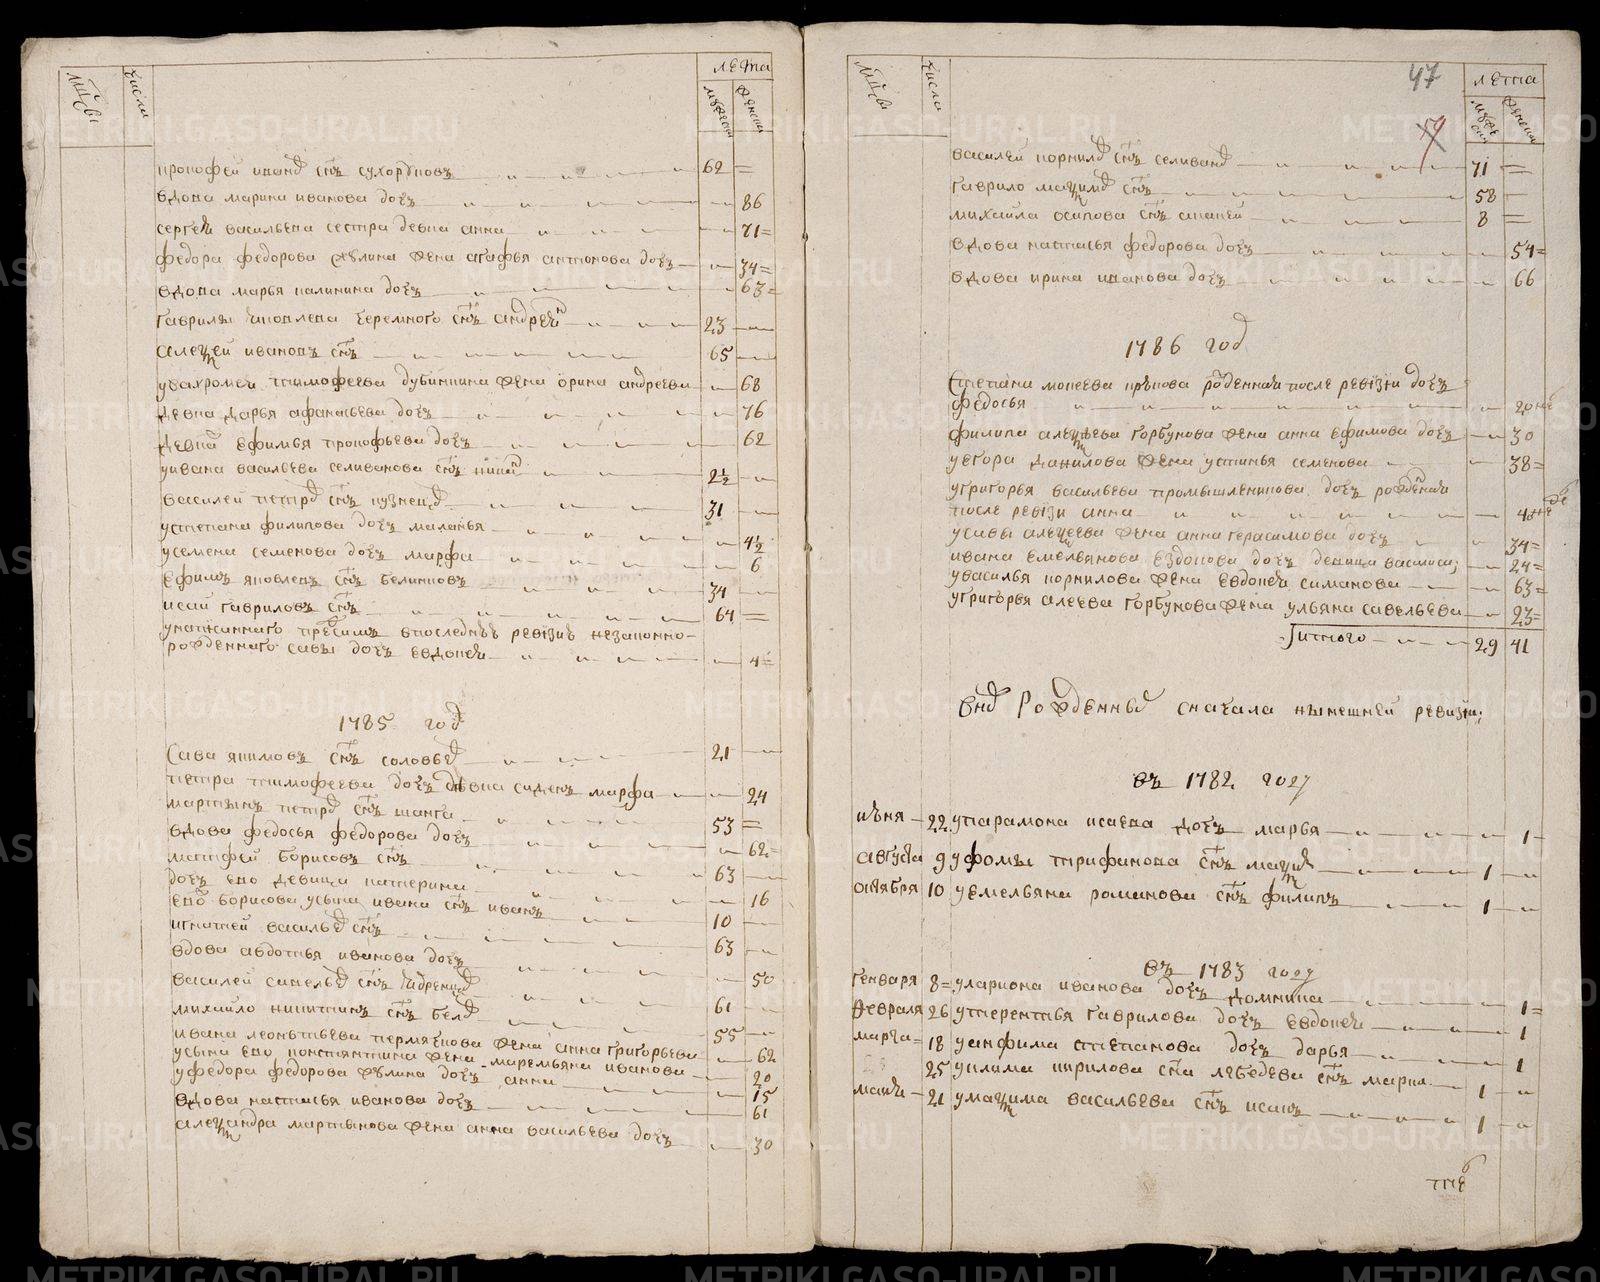 мцы
числа
лета
мужески
женски
прокофеи иванов снъ сухоруковъ 62
вдова марина иванова дочь 86
сергея васильева сестра девка анна 71
федора федорова жена агафья антонова дочь 34
вдова марья калинина дочь 63
гаврилы яковлева черемного снъ андреи 23
алеѯеи ивановъ снъ 65
увахромея тимофеева дубинкина жена орина андреева 68
девка дарья афанасьева дочь 76
девка ефимья прокофьева дочь 62
уивана васильева селиванова снъ 2½
василеи петров снъ кузнецов 31
устепана филипова дочь маланья 4½
усемена семенова дочь марфа 6
ефимъ яковлевъ снъ белинковъ 34
исаи гавриловъ снъ 64
впоследней ревизии незаконно-
рожденнаго савы дочь евдокея 4
1785 год
Сава якимовъ снъ соловьев 21
петра тимофеева дочь девка марфа 24
мартынъ петров снъ шанга 53
вдова федосья федорова дочь 62
матфеи борисовъ снъ 63
дочь ево девица катерина 16
ево борисова усына ивана снъ иванъ 10
игнатеи васильев снъ 63
вдова авдотья иванова дочь 50
василеи савельев снъ 61
михаило никитинъ снъ белов 55
ивана леонтьева пермякова жена анна григорьева 62
усына ево констянтина жена маремьяна иванова 20
уфедора федорова дочь анна 15
вдова настасья иванова дочь 61
алеѯандра мартынова жена анна васильева дочь 30
мцы
числа
47
лета
мужески
женски
василеи корнилов снъ селиванов 71
гаврило маѯимов снъ 58
михаила осипова снъ ананеи 8
вдова настасья федорова дочь 54
вдова ирина иванова дочь 66
1786 год
Степана мокеева рожденная после ревизи дочь
федосья 20
филипа алеѯеева горбунова жена анна ефимова дочь 30
уегора данилова жена устинья семенова 38
угригорья васильева промышленникова дочь рожденая
после ревизи анна 4
усавы алеѯеева жена анна герасимова дочь 34
ивана емельянова ездокова дочь девица василиса 24
увасилья корнилова жена евдокея симанова 63
угригорья алеева горбунова жена ульяна савельева 23
итого 29 41
Внов Рожденные сначала нынешней ревизии
въ 1782 году
июня 22 упарамона исаева дочь марья 1
августа 9 уфомы трифанова снъ маѯим 1
октября 10 уемельяна романова снъ филипъ 1
въ 1783 году
генваря 8 улариона иванова дочь домника 1
февраля 26 утерентья гаврилова дочь евдокея 1
марта 18 уанфима степанова дочь дарья 1
25 уклима кирилова сна лебедева снъ марка 1
майя 21 умаѯима васильева снъ исакъ 1